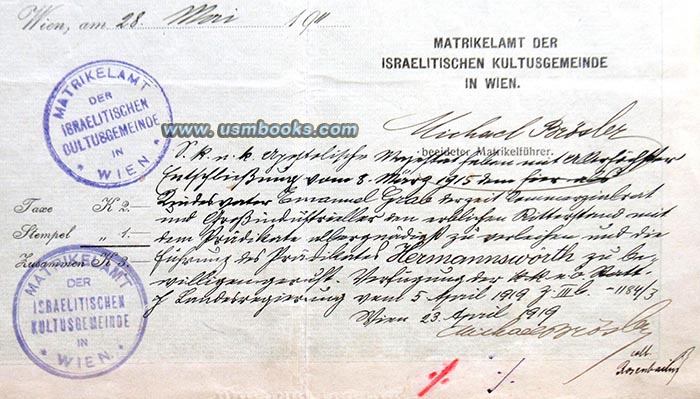 Wien, am 28. Mai 19
MATRIKELAMT DER
ISRAELITISCHEN KULTUSGEMEINDE
IN WIEN.
MATRIKELAMT
DER
ISRAELITISCHEN
CULTUSGEMEINDE
IN
* WIEN *
www.usmbooks.com
Michael Brösler
beeideter Matrikelführer.
S. k. u. k. Apostolische Majestät haben mit Allerhöchster
Entschließung vom 8. März 1915 dem hier als
Kindesvater Emanuel Grab derzeit Commerzialrat
und Großindustrieller den erblichen Ritterstand mit
dem Prädikate allergnädigst zu verleihen und die
Führung des Prädikates Hermannsworth zu be-
willigen geruht. Verfügung der
Landesregierung vom 5 April 1919 Z. III b. - 1184/3
Wien 23 April 1919
Michael Brösler
Taxe K 2.—
Stempel " 1.—
Zusammen K 3.—
MATRIKELAMT
DER
ISRAELITISCHEN
KULTUSGEMEINDE
IN
* WIEN. *